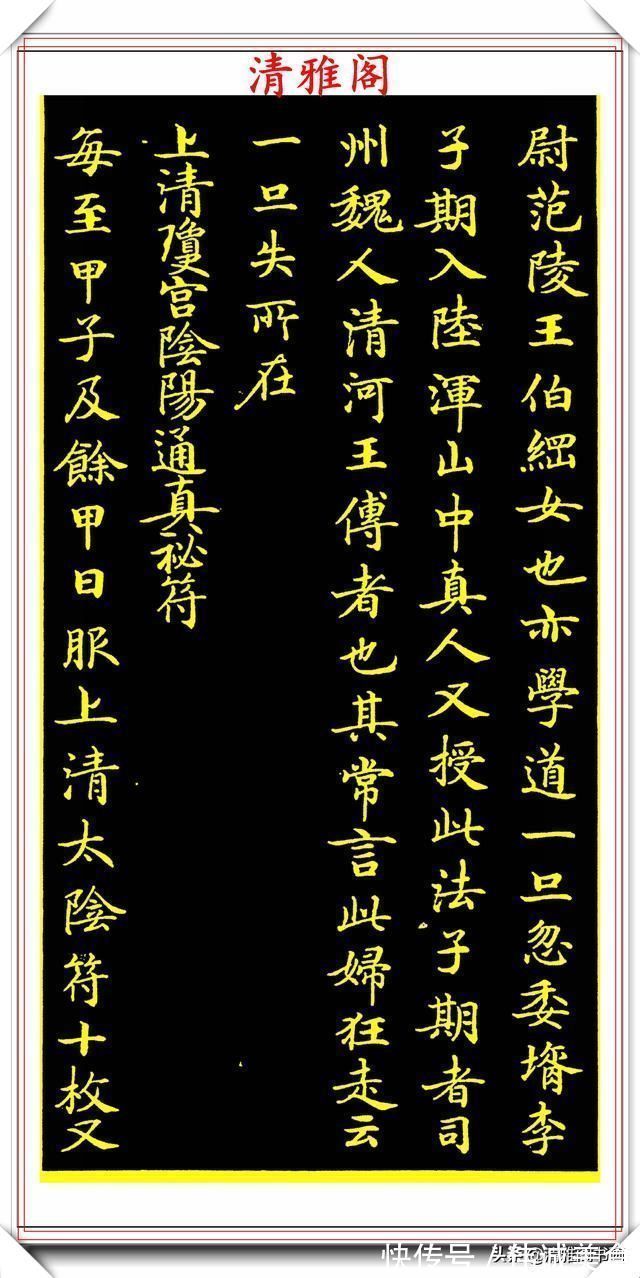 清雅阁
尉范陵王伯綱女也亦學道一旦忽委壻李
子期入陸渾山中真人又授此法子期者司
州魏人清河王傅者也其常言此婦狂走云
一旦失所在
上清瓊宮陰陽通真祕符
每至甲子及餘甲日服上清太陰符十枚又
快传号